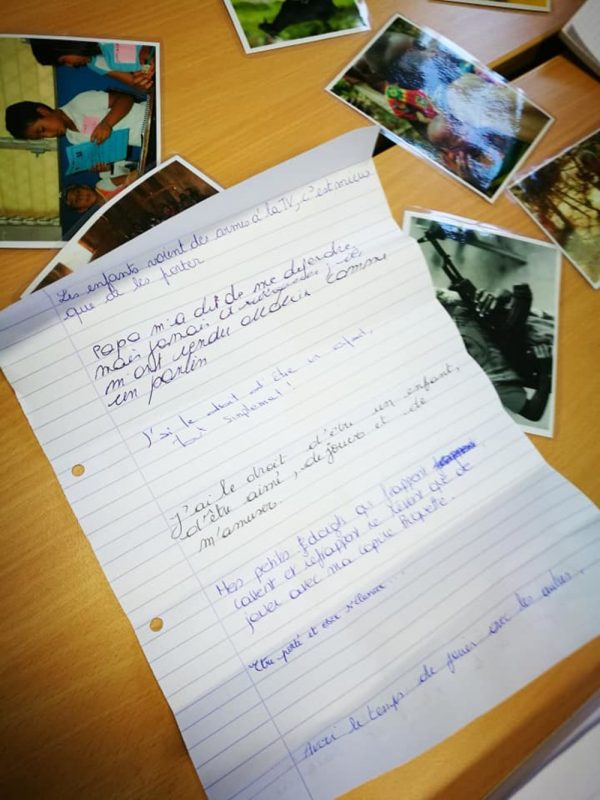 Les enfants voient des armes à la TV, c'est mieux
que de les porter
Papa m'a dit de me défendre
mais jamais d'
m'ont rendu comme
un pantin
J'ai le droit d'être un enfant,
tout simplement !
J'ai le droit d'être un enfant,
d'être aimé, de jouer et de
m'amuser.
Mes petits doigts qui frappent
cassent et refrappent ne rêvent que de
jouer avec ma copine Piquette.
Etre porté et oser s'élancer...
Avoir le temps de jouer avec les autres.